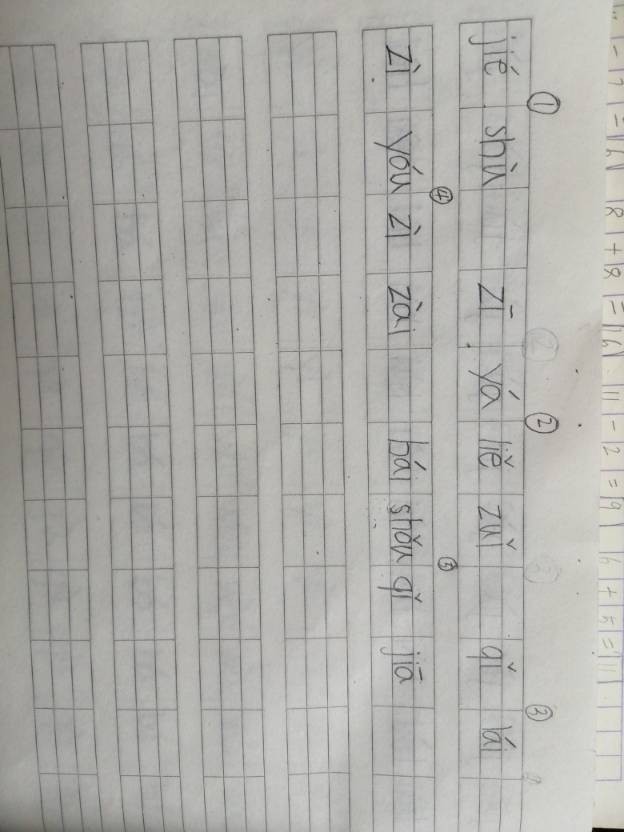 8+8=16 11-2=9 6+5=11
① ② ③
jié shù zī yá liě zuǐ qǐ lái
④ ⑤
zì yóu zì zài bái shǒu qǐ jiā